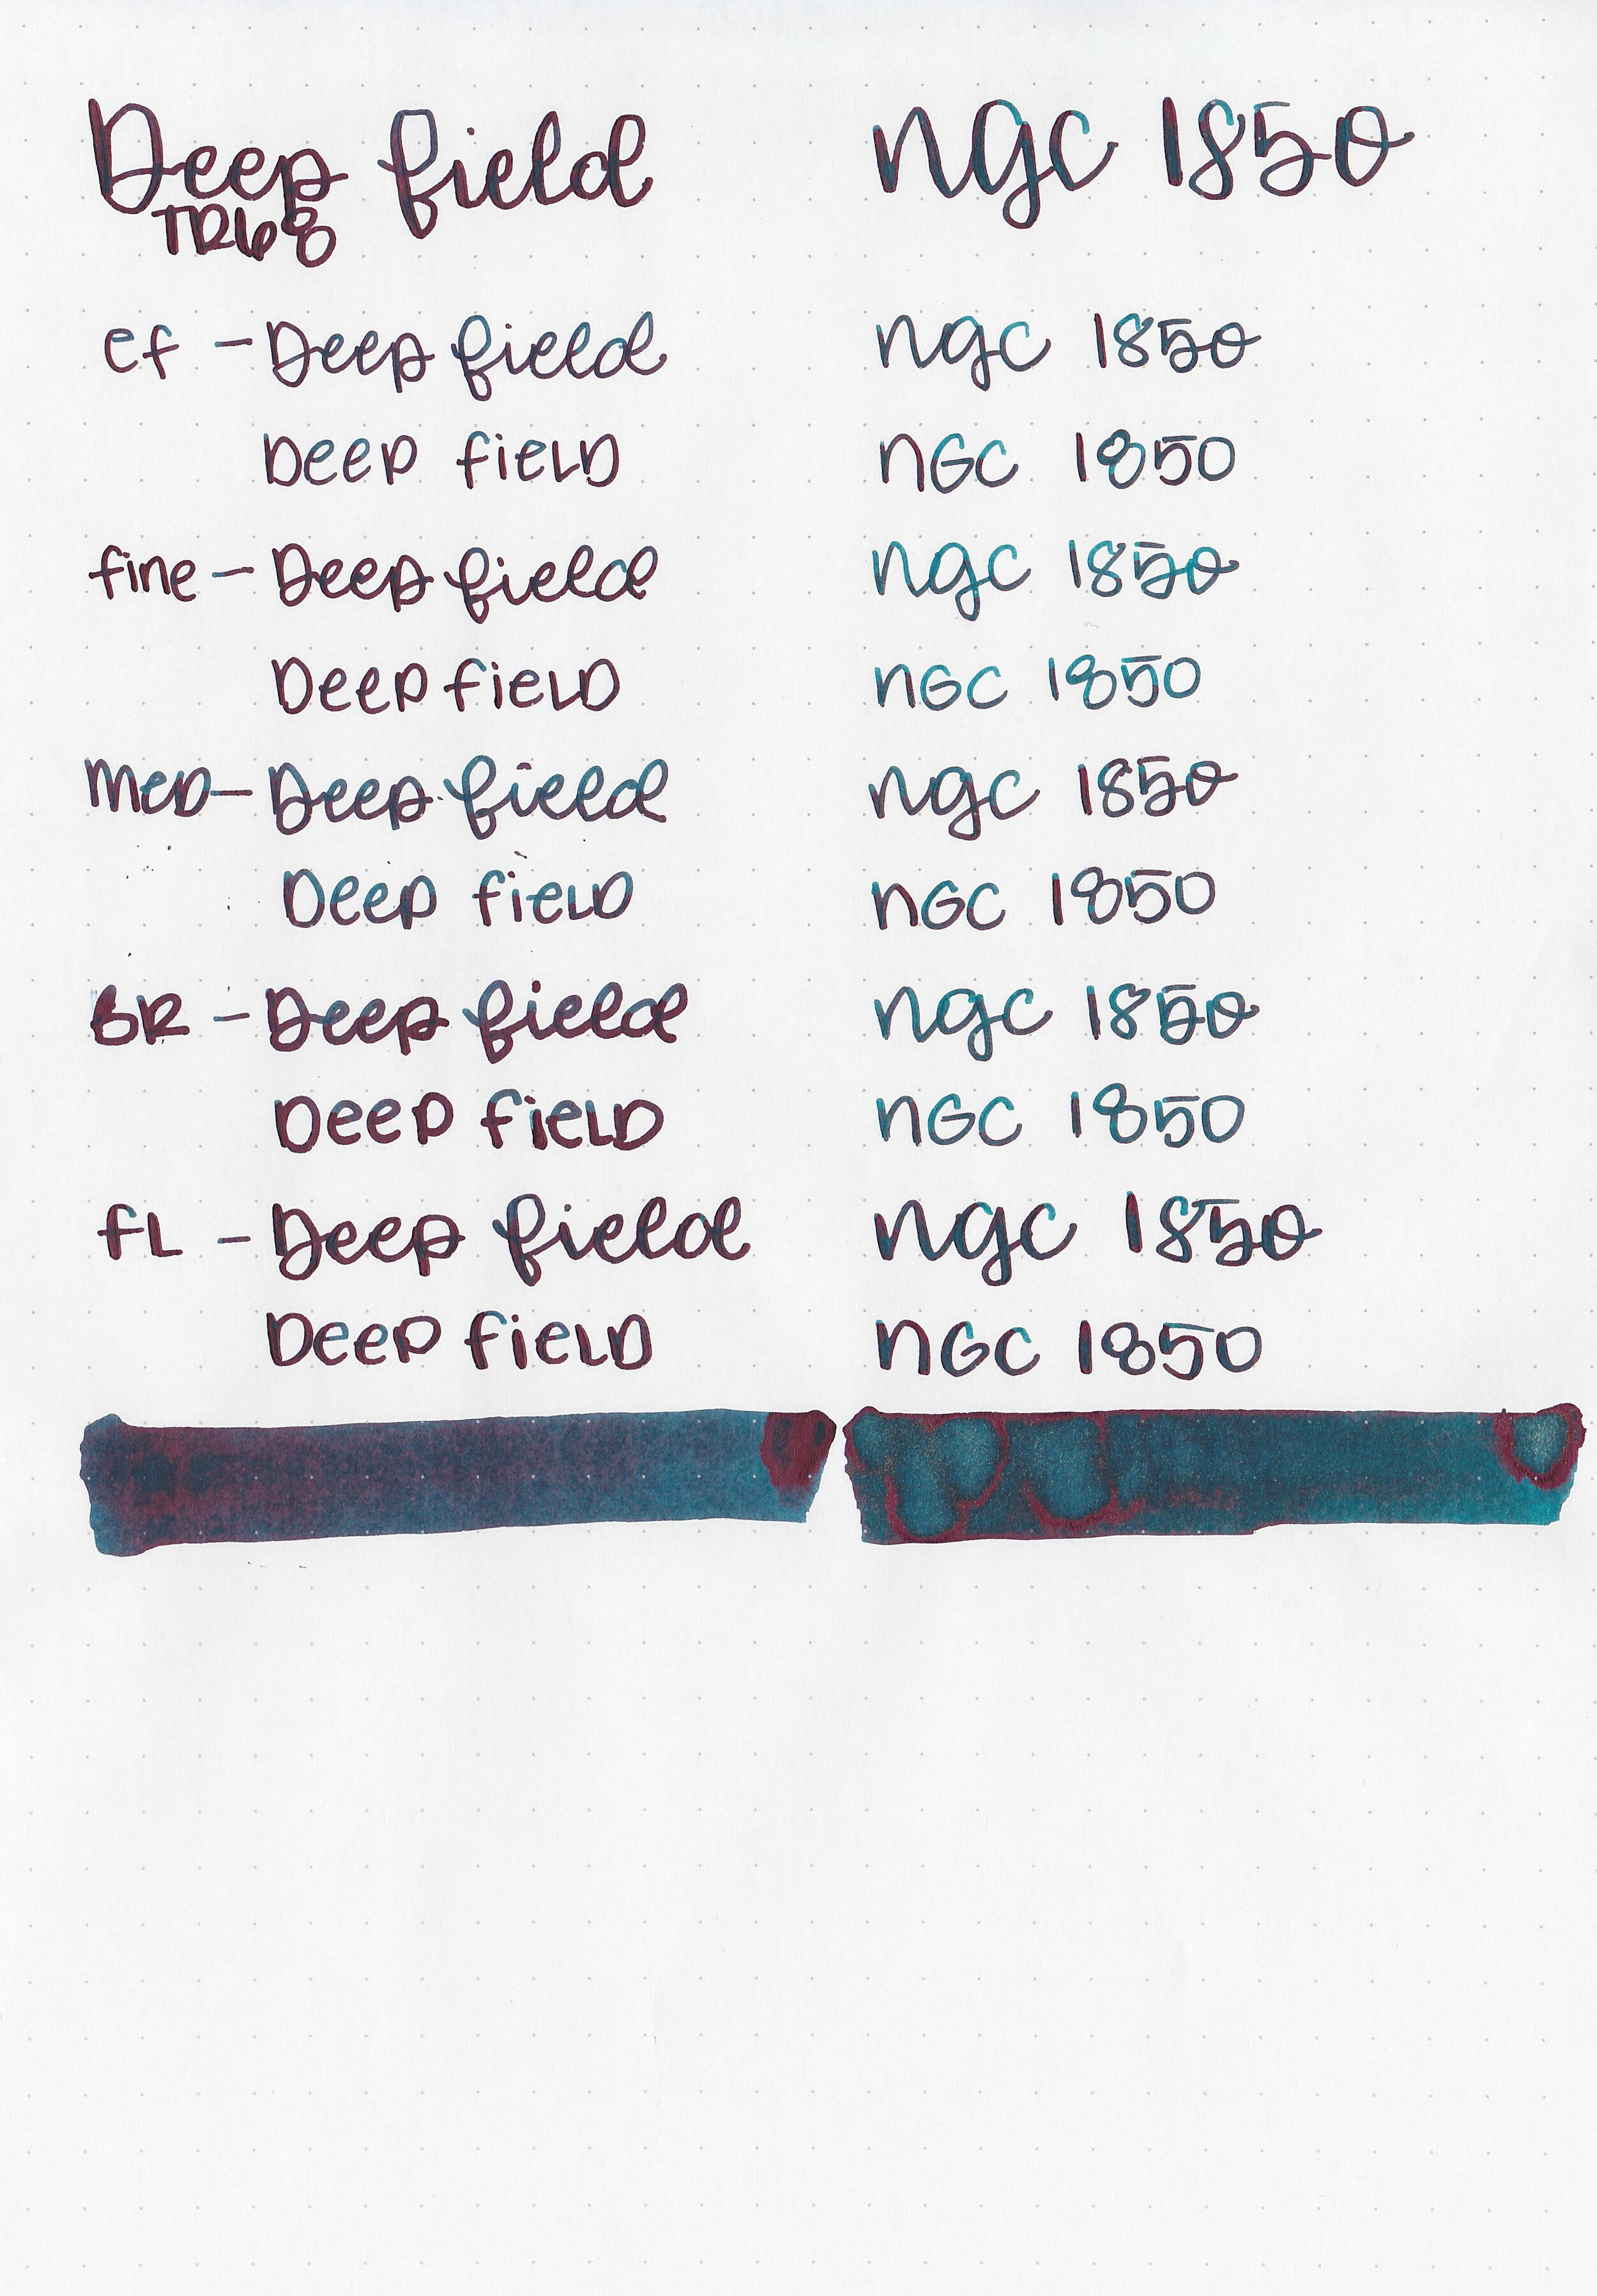 Deep field ngc 1850
TR68
ef - Deep field ngc 1850
Deep field nGC 1850
fine - Deep field ngc 1850
Deep field nGC 1850
Med - Deep field ngc 1850
Deep field nGC 1850
BR - Deep field ngc 1850
Deep field nGC 1850
fL - Deep field ngc 1850
Deep field nGC 1850